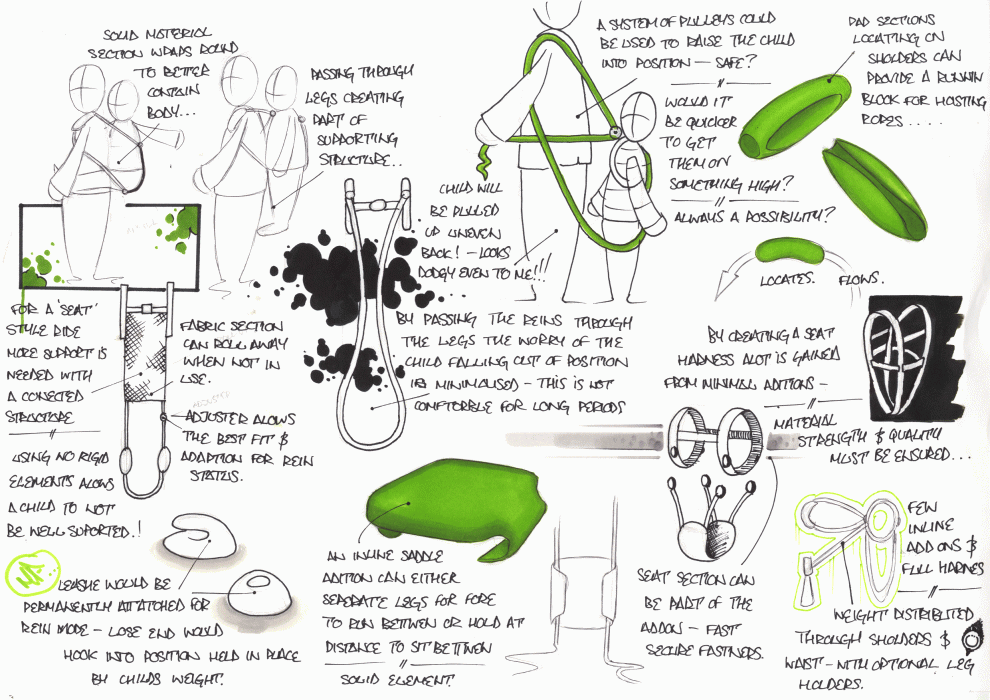 SOLID MATERIAL
SECTION WRAPS ROUND
TO BETTER
CONTAIN
BODY...
PASSING THROUGH
LEGS CREATING
PART OF
SUPPORTING
STRUCTURE..
A SYSTEM OF PULLEYS COULD
BE USED TO RAISE THE CHILD
INTO POSITION — SAFE?
WOULD IT
BE QUICKER
TO GET
THEM ON
SOMETHING HIGH?
ALWAYS A POSSIBILITY?
PAD SECTIONS
LOCATING ON
SHOLDERS CAN
PROVIDE A RUNNIN
BLOCK FOR HOSTING
ROPES....
CHILD WILL
BE PULLED
UP UNEVEN
BACK! - LOOKS
DODGY EVEN TO ME!!!
LOCATES. FLOWS.
FOR A 'SEAT'
STYLE RIDE
MORE SUPPORT IS
NEEDED WITH
A CONECTED
STRUCTURE
USING NO RIGID
ELEMENTS ALOWS
A CHILD TO NOT
BE WELL SUPORTED.!
FABRIC SECTION
CAN ROLL AWAY
WHEN NOT IN
USE.
ADJUSTER ALOWS
THE BEST FIT &
ADAPTION FOR REIN
STATUS.
BY PASSING THE REINS THROUGH
THE LEGS THE WORRY OF THE
CHILD FALLING OUT OF POSITION
IS MINIMOUSED - THIS IS NOT
COMFTORBLE FOR LONG PERIODS
BY CREATING A SEAT
HARNESS ALOT IS GAINED
FROM MINIMAL ADITIONS -
MATERIAL
STRENGTH & QUALITY
MUST BE ENSURED...
LEASHE WOULD BE
PERMANENTLY ATTATCHED FOR
REIN MODE - LOSE END WOULD
HOOK INTO POSITION HELD IN PLACE
BY CHILDS WEIGHT.
AN INLINE SADDLE
ADITION CAN EITHER
SEPERATE LEGS FOR FORE
TO RUN BETWEEN OR HOLD AT
DISTANCE TO SIT BETWEEN
SOLID ELEMENT.
SEAT SECTION CAN
BE PART OF THE
ADDON - FAST
SECURE FASTNERS.
FEW
INLINE
ADD ONS &
FULL HARNES
WEIGHT DISTRIBUTED
THROUGH SHOLDERS &
WAIST - WITH OPTIONAL LEG
HOLDERS.